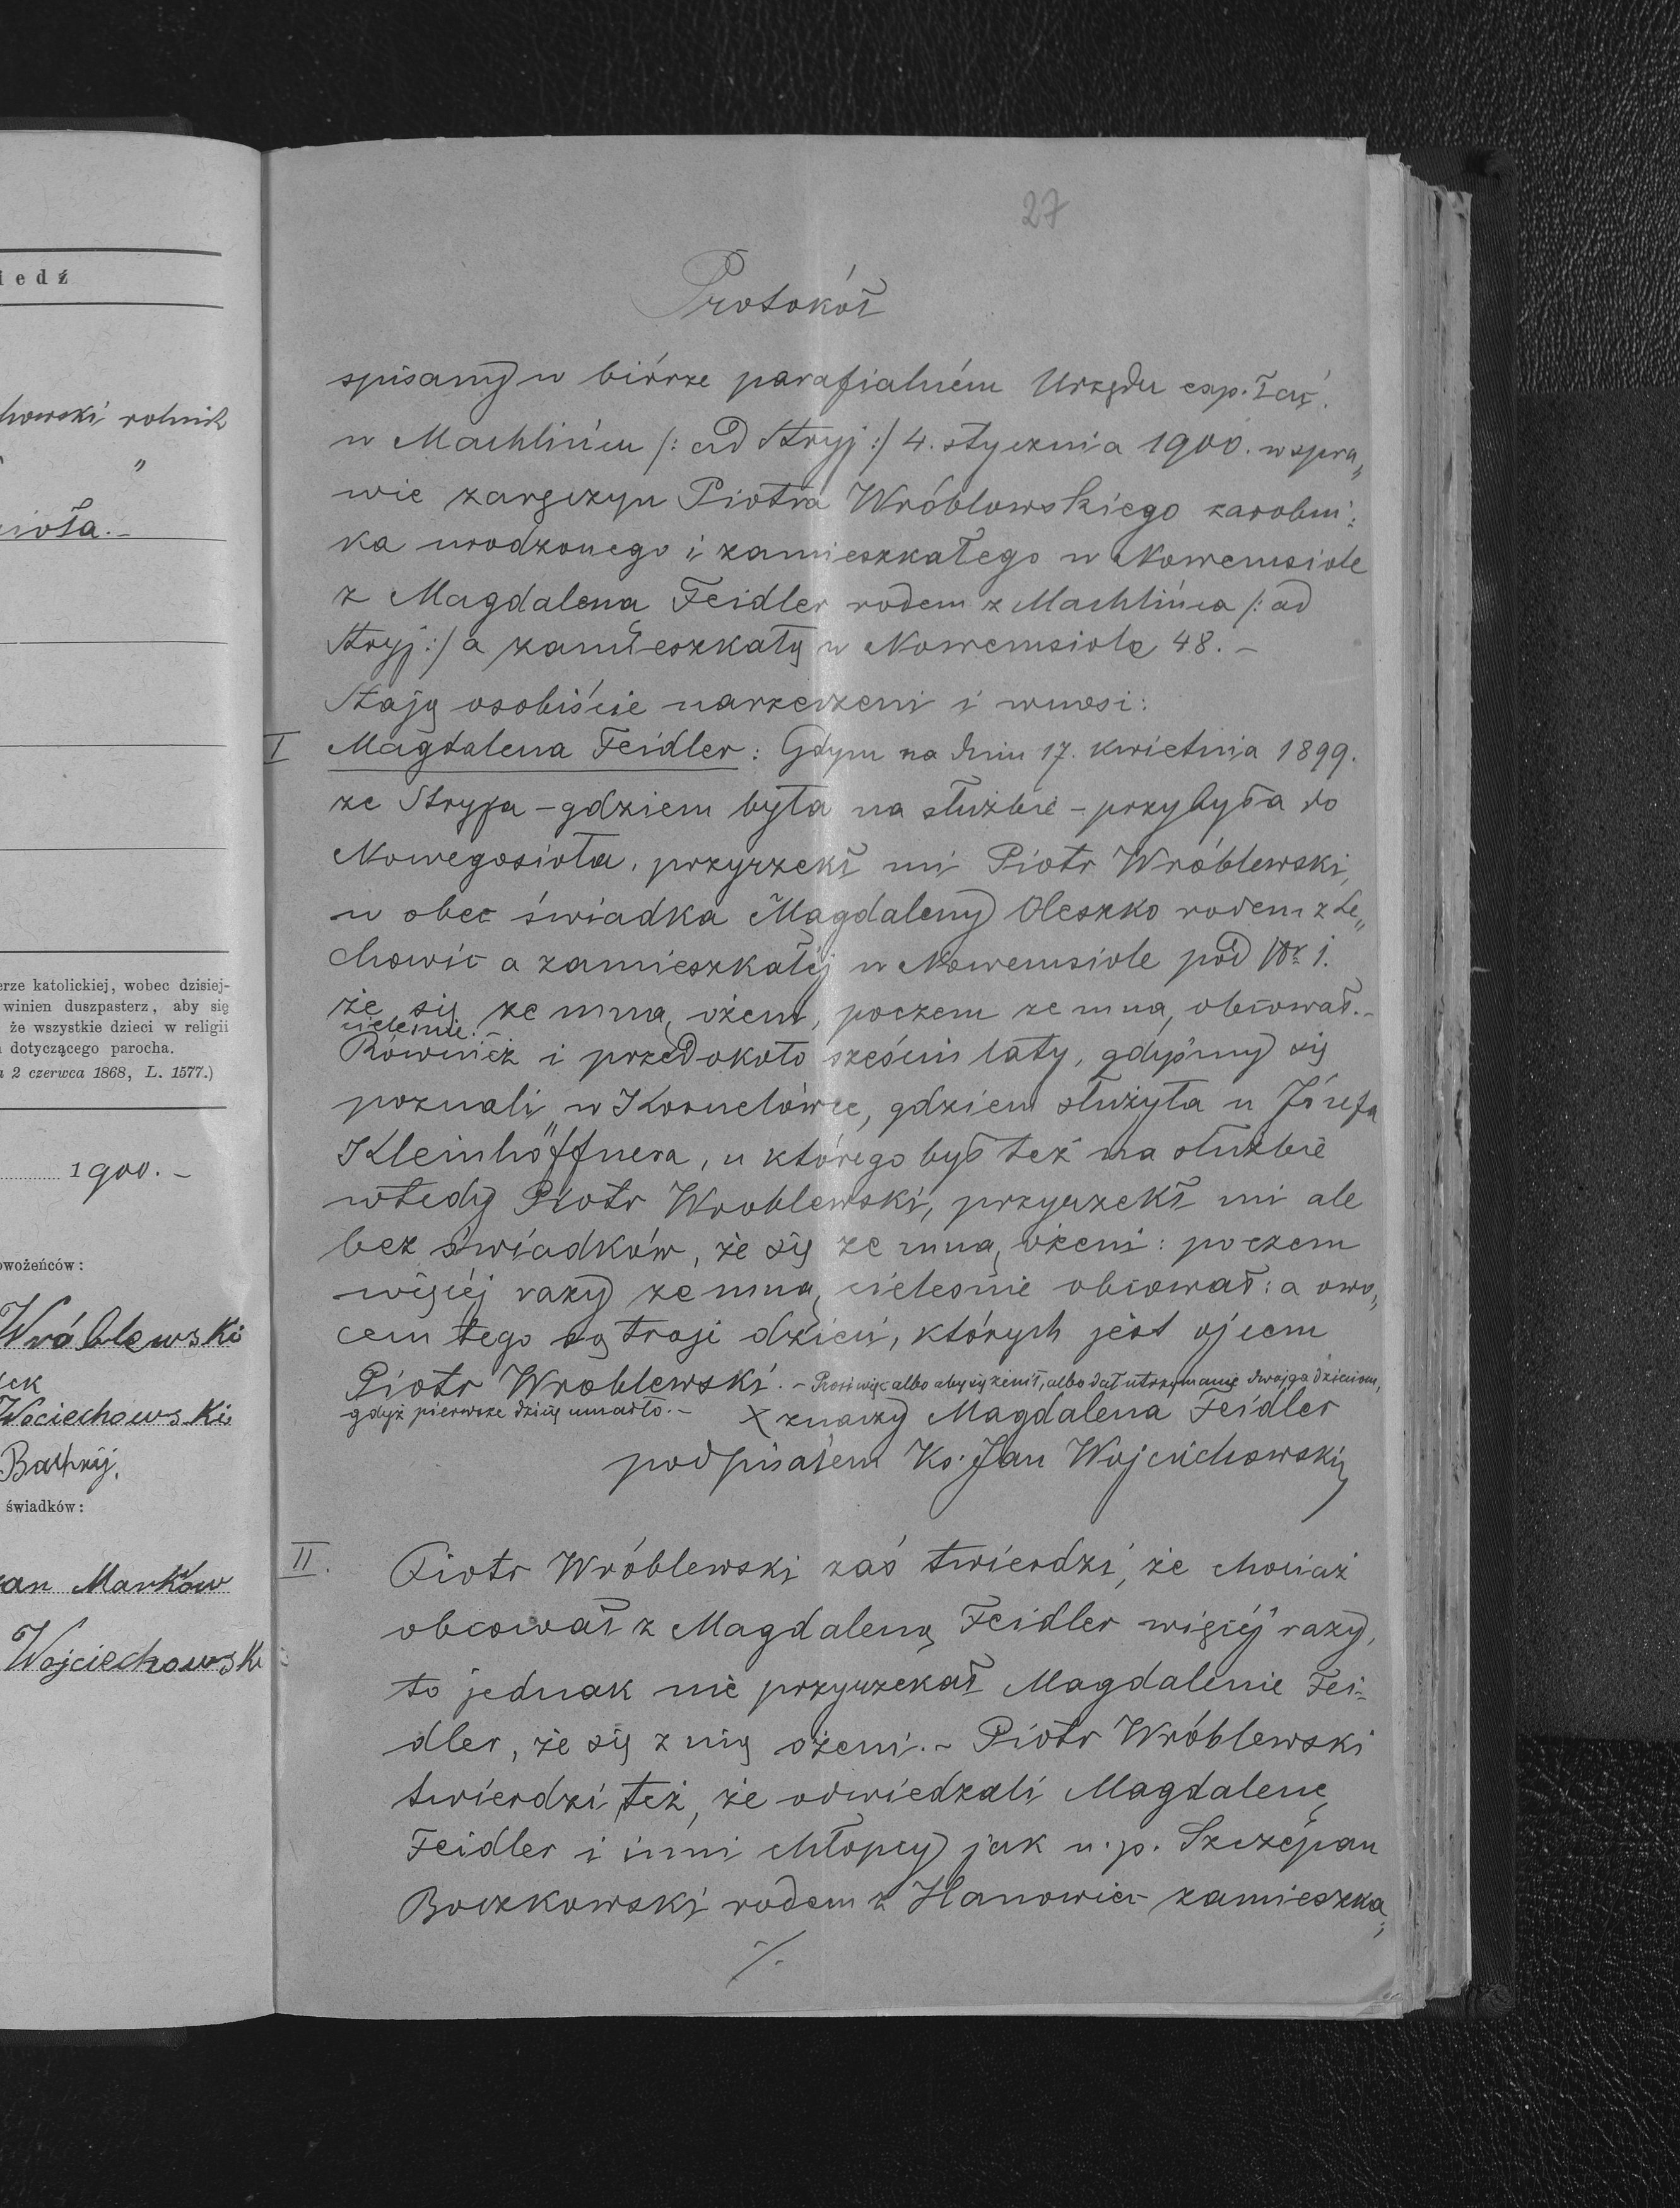 27
iedź
howski rolnik
"
ioła.-
erze katolickiej, wobec dzisiej-
winien duszpasterz, aby się
że wszystkie dzieci w religii
dotyczącego parocha.
2 czerwca 1868, L. 1577.)
1900.-
owożeńców:
Wróblewski
Wociechowski
świadków:
an Marków
Wojciechowski
Protokół
spisany w biórze parafialném Urzędu exp. łać.
w Machlińcu /: ad Stryj :/ 4. stycznia 1900. w spra„
wie zaręczyn Piotra Wróblowskiego zarobni:
ka urodzonego i zamieszkałego w Nowemsiole
z Magdaleną Feidler rodem z Machlińca /: ad
Stryj :/ a zamieszkałą w Nowemsiole 48. -
Stają osobiście narzeczeni i wnosi:
I Magdalena Feidler: Gdym na dniu 17. kwietnia 1899.
ze Stryja - gdziem była na służbie - przybyła do
Nowegosioła, przyrzekł mi Piotr Wróblewski,
w obec świadka Magdaleny Oleszko rodem z Le„
chowic a zamieszkałéj w Nowemsiole pod Nr 1.
że się ze mną ożeni, poczem ze mną obcował.-
cieleśnie.-
Również i przed około sześciu laty, gdyśmy się
poznali w Kornelówce, gdziem służyła u Józefa
Kleinhöffnera, u którego był też na służbie
wtedy Piotr Wroblewski, przyrzekł mi ale
bez świadków, że się ze mną ożeni: poczem
więcéj razy ze mną cieleśnie obcował: a owo„
cem tego są troje dzieci, których jest ojcem
Piotr Wroblewski. - Prosi więc albo aby się żenił, albo dał utrzymanie dwojga dzieciom,
gdyż pierwsze dziecię umarło.- X znaczy Magdalena Feidler
podpisałem Ks. Jan Wojciechowski
II. Piotr Wróblewski zaś twierdzi, że chociaż
obcował z Magdaleną Feidler więcéj razy,
to jednak nie przyrzekał Magdalenie Fei-
dler, że się z nią ożeni.- Piotr Wróblewski
twierdzi też, że odwiedzali Magdalenę
Feidler i inni chłopcy jak n. p. Szczepan
Boczkowski rodem z Hanowiec zamieszka„
/.